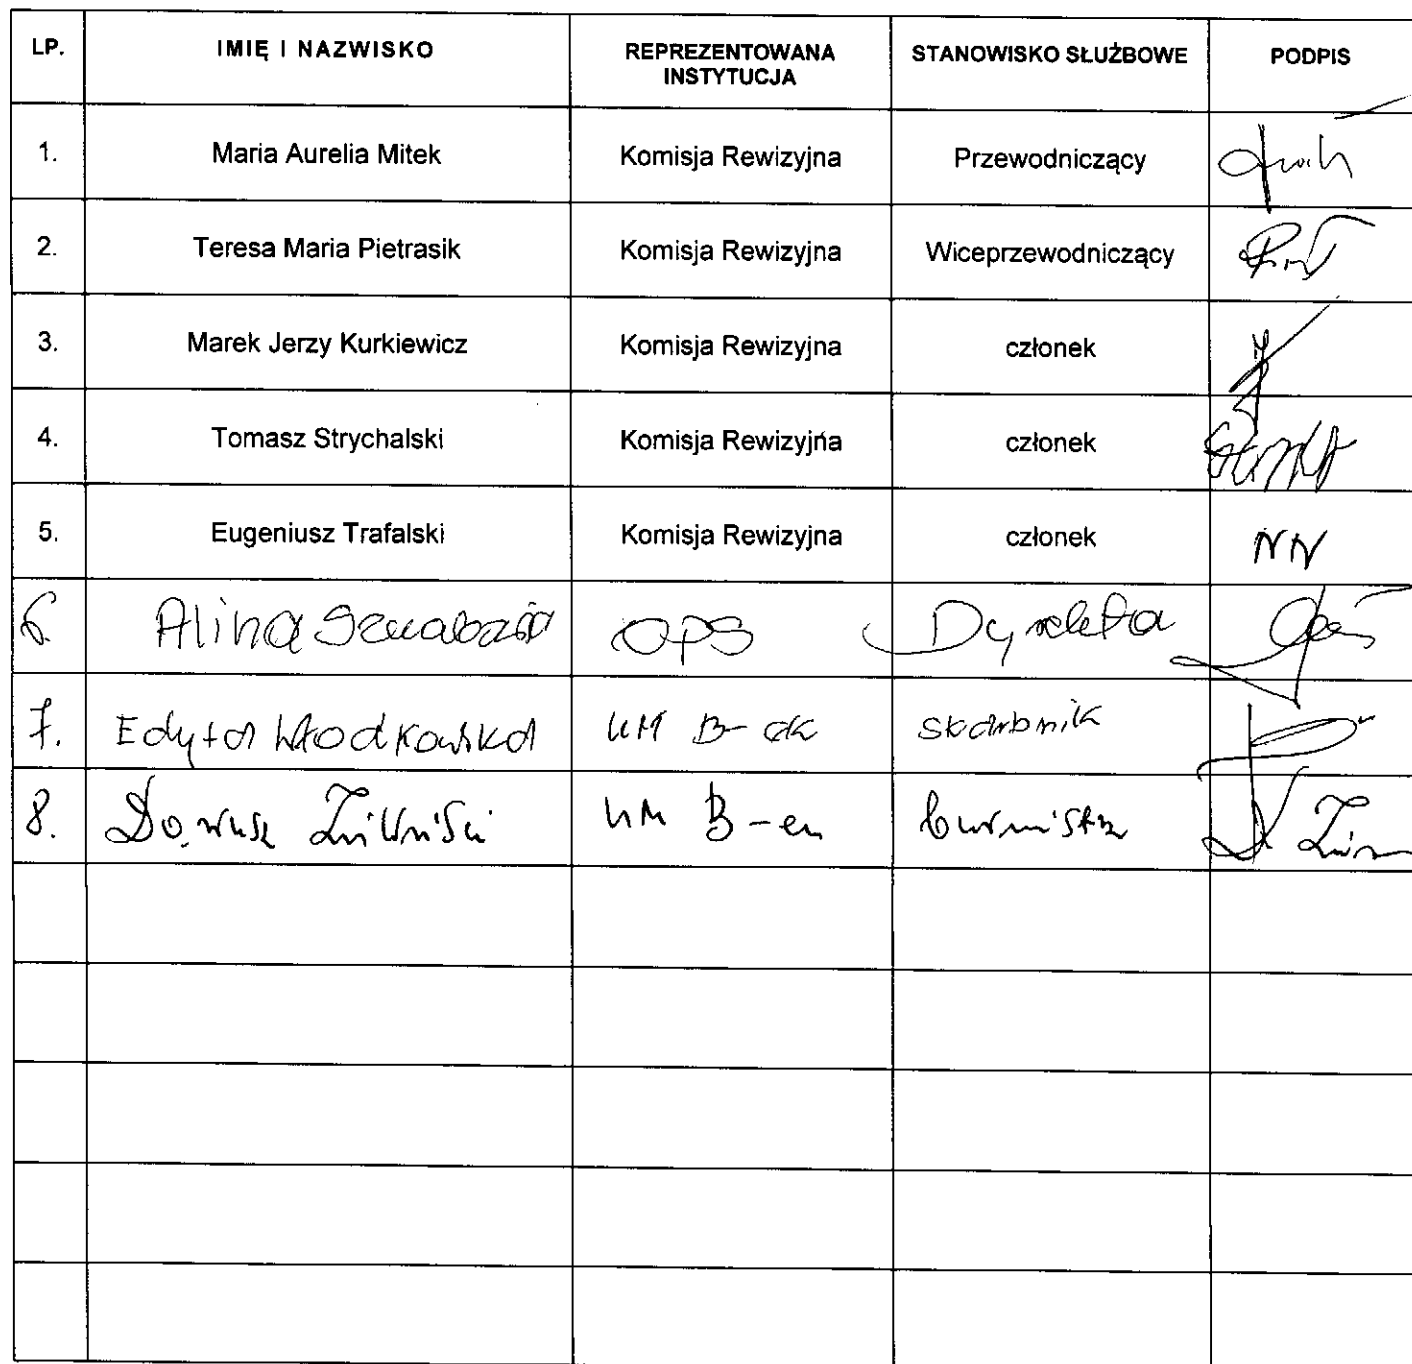 LP. IMIĘ I NAZWISKO REPREZENTOWANA INSTYTUCJA STANOWISKO SŁUŻBOWE PODPIS
1. Maria Aurelia Mitek Komisja Rewizyjna Przewodniczący
2. Teresa Maria Pietrasik Komisja Rewizyjna Wiceprzewodniczący
3. Marek Jerzy Kurkiewicz Komisja Rewizyjna członek
4. Tomasz Strychalski Komisja Rewizyjna członek
5. Eugeniusz Trafalski Komisja Rewizyjna członek NN
6. Alina OPS Dyrektor
7. Edyta Włodkowska UM B-ek skarbnik
8. Dariusz UM B-en burmistrz